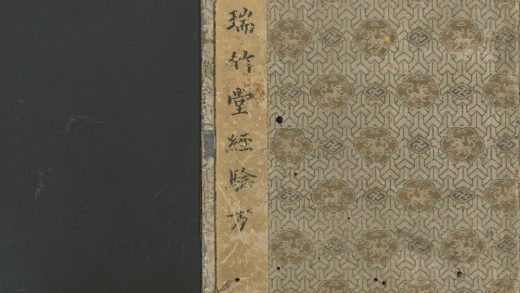 瑞竹堂經驗方